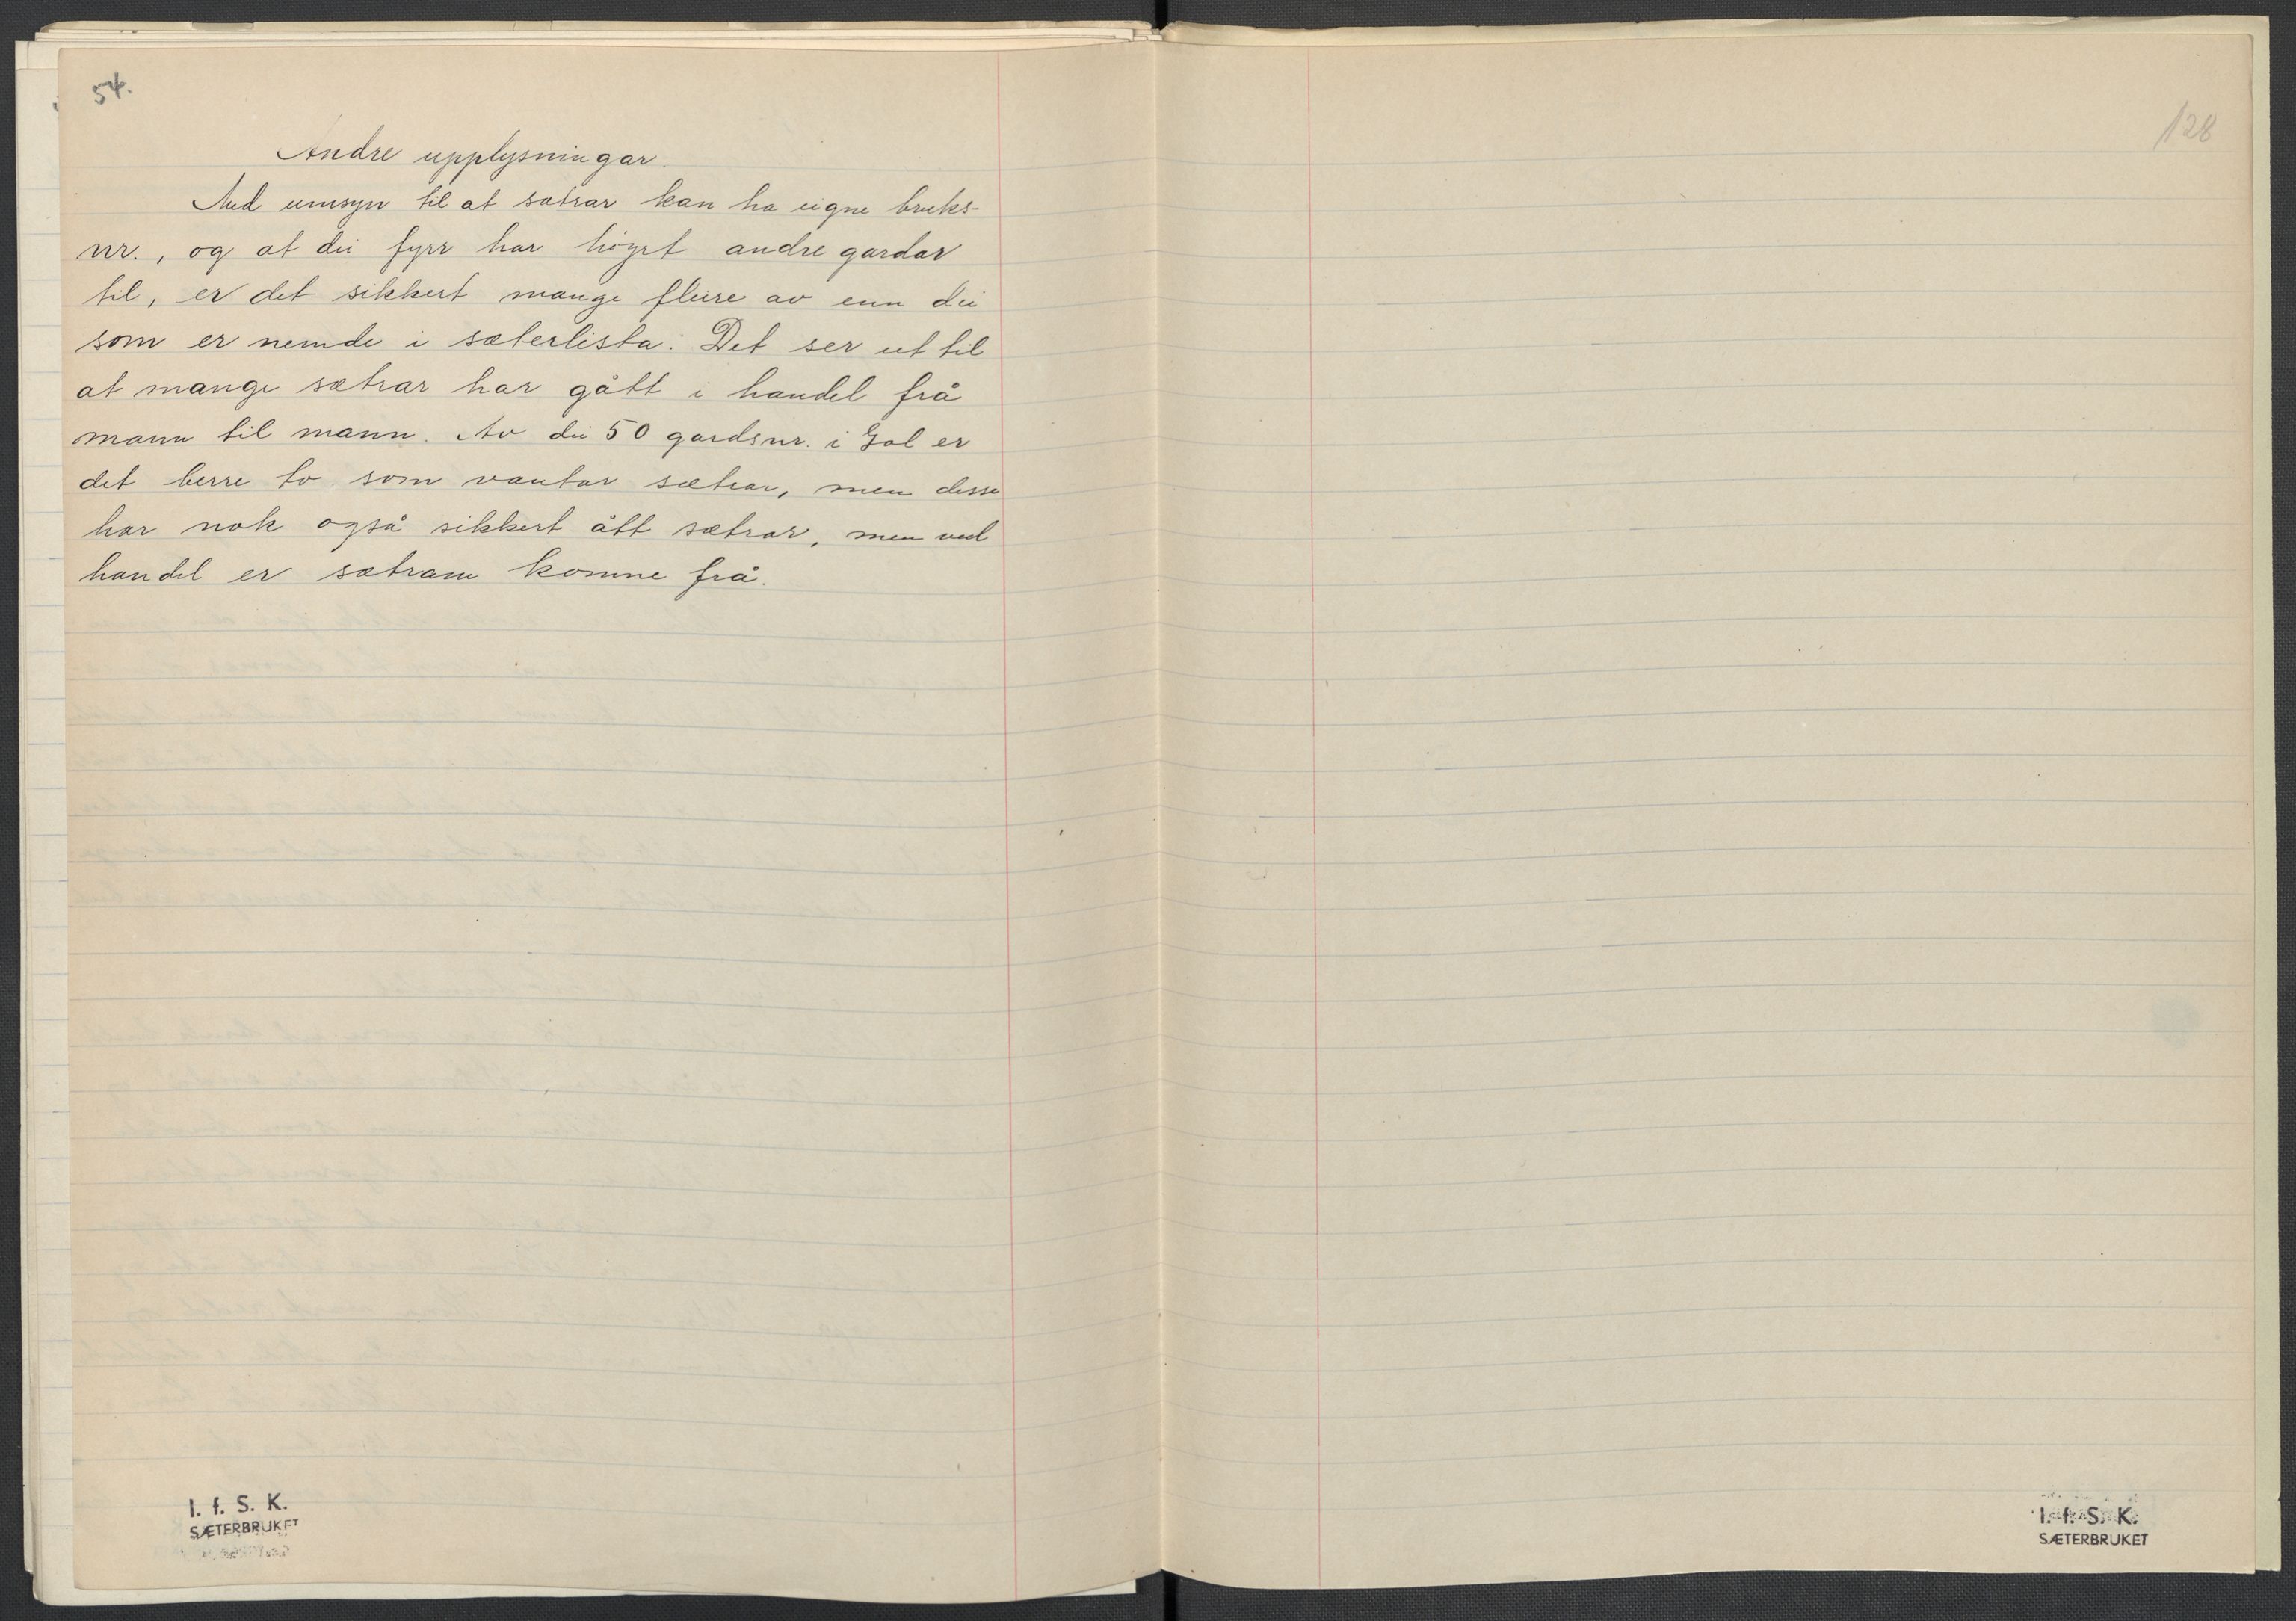 54.
Andre upplysningar.
Med umsyn til at sætrar kan ha eigne bruks-
nr., og at dei fyrr har höyrt andre gardar
til, er det sikkert mange fleire av enn dei
som er nemde i sæterlista. Det ser ut til
at mange sætrar har gått i handel frå
mann til mann. Av dei 50 gardsnr. i Gol er
det berre to som vantar sætrar, men desse
har nok også sikkert ått sætrar, men ved
handel er sætrane komne frå.
I. f. S. K.
SÆTERBRUKET
128
I. f. S. K.
SÆTERBRUKET